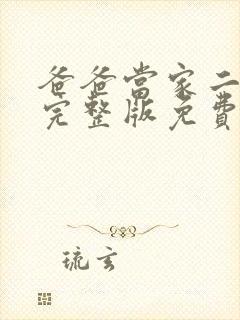 爸爸當家二
完整版免費
琉玄